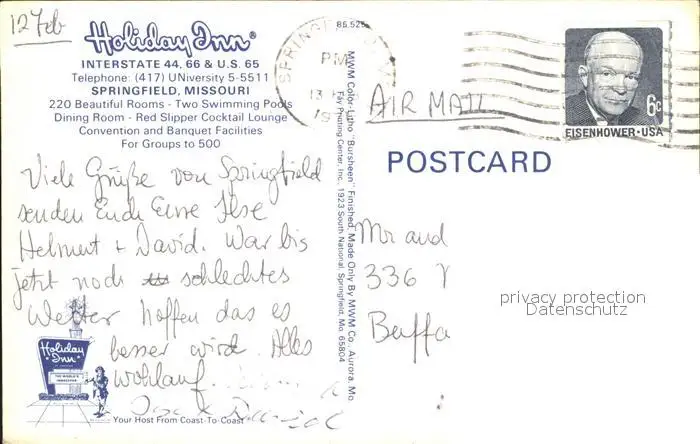 12 Feb
Holiday Inn®
INTERSTATE 44, 66 & U.S. 65
Telephone: (417) UNiversity 5-5511
SPRINGFIELD, MISSOURI
220 Beautiful Rooms - Two Swimming Pools
Dining Room - Red Slipper Cocktail Lounge
Convention and Banquet Facilities
For Groups to 500
Viele Grüße von Springfield
senden Euch Eure Ilse
Helmut + David. War bis
jetzt noch schlechtes
Wetter hoffen das es
besser wird. Alles
wohlauf.
Holiday Inn
Your Host From Coast-To-Coast
85,525
MWM Color-Litho "Bursheen" Finished, Made Only By MWM Co., Aurora, Mo.
Fay Printing Center, Inc., 1923 South National, Springfield, Mo. 65804
PM
13
AIR MAIL
6c
EISENHOWER·USA
POSTCARD
Mr and
336
Buffa
privacy protection
Datenschutz